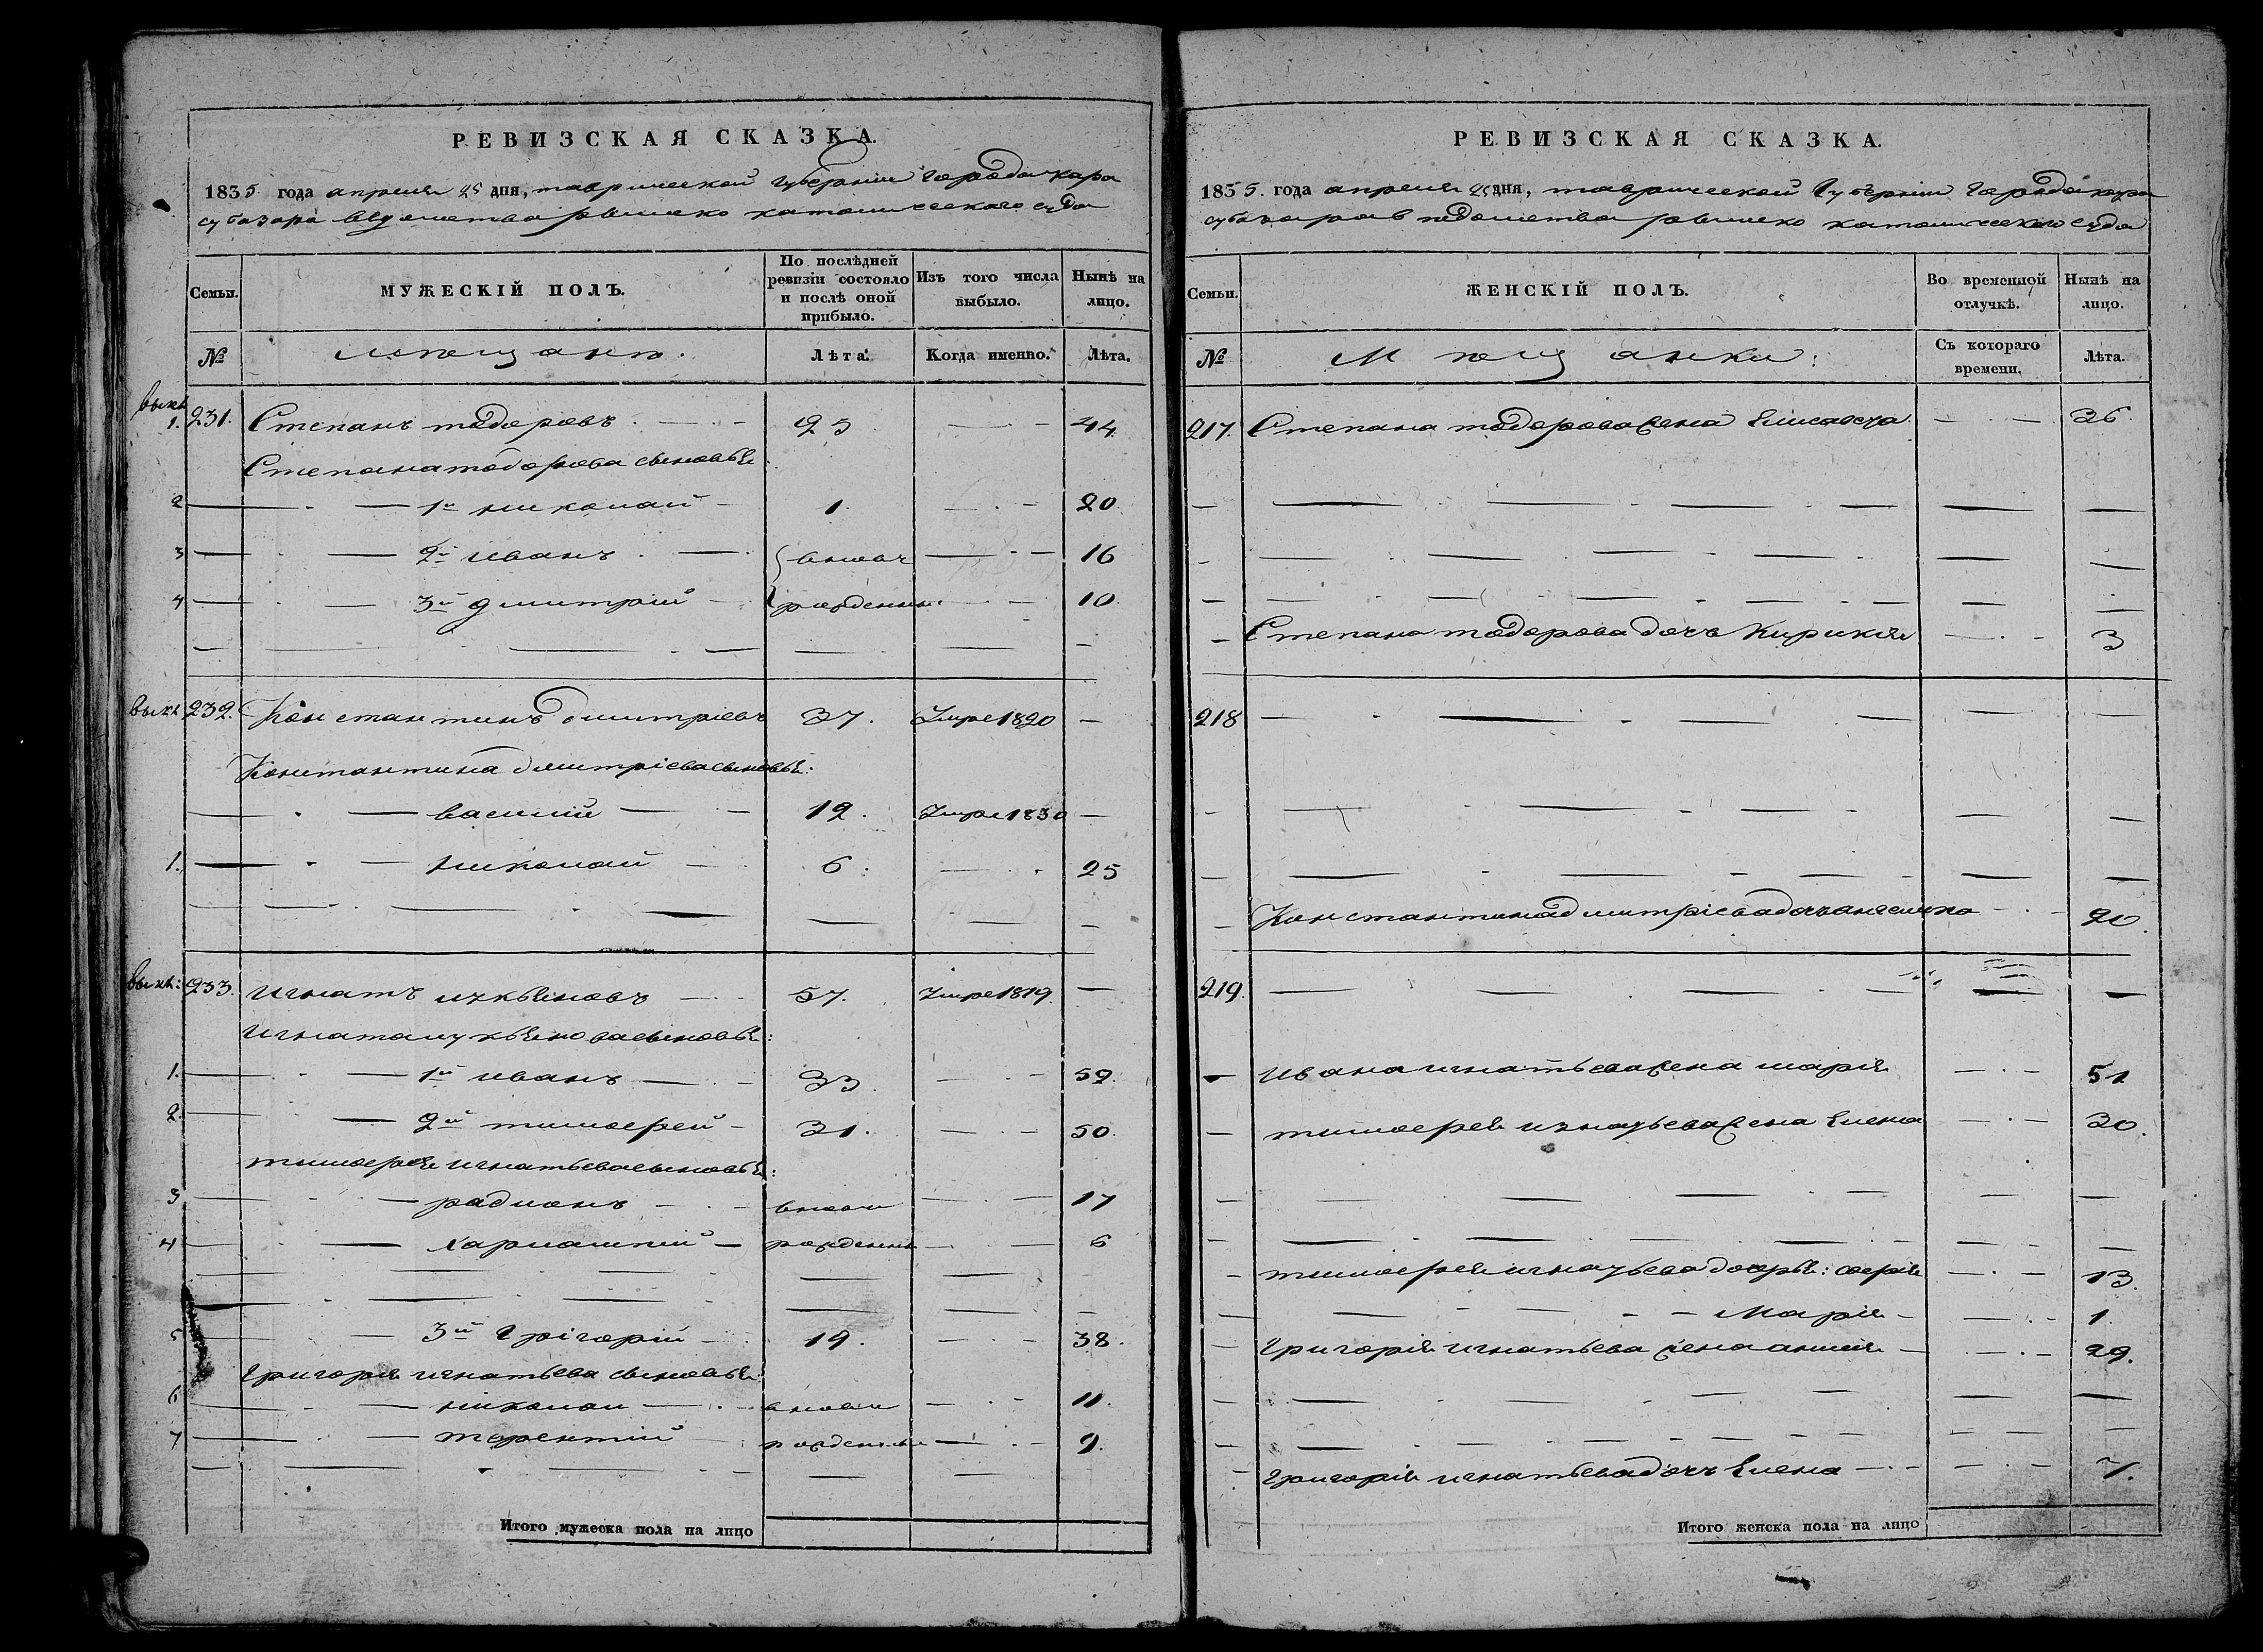 РЕВИЗСКАЯ СКАЗКА.
1835. года апреля 25 дня, таврической губерніи города кара
субазара ведометва римско католическаго суда
Семьи.
МУЖЕСКІЙ ПОЛЪ.
По послѣдней ревизіи состояло и послѣ оной прибыло.
Изъ того числа выбыло.
Нынѣ на лицо.
№
мѣщанѣ.
Лѣта.
Когда именно.
Лѣта.
1. 231. Степанъ тодоровъ 25 44
Степана тодорова сыновья
2 1й николай 1. 20
3 2й иванъ вновь 16
4 3й дмитрій рожденны 10
232. Константинъ дмитріевъ 37. Умре 1820
Константина дмитріева сыновья:
василій 12. Умре 1830
1. николай 6. 25
233. игнатъ 57. Умре 1819.
игната сыновья:
1. 1й иванъ 33 52
2. 2й тимофей 31. 50.
тимофея игнатьева сыновья:
3 радионъ вновь 17
4 харлампій рожденны 6
5 3й Григорій 19. 38.
Григорія игнатьева сыновья
6 николаи вновь 11.
7 терентій рожденны 9.
Итого мужеска пола на лицо
РЕВИЗСКАЯ СКАЗКА.
1835. года апреля 25 дня, таврической губерніи города кара
субазара ведометва римско католическаго суда
Семьи.
ЖЕНСКІЙ ПОЛЪ.
Во временной отлучкѣ.
Нынѣ на лицо.
№
Мѣщанки:
Съ котораго времени.
Лѣта.
217. Степана тодорова жена Елисавета 36
Степана тодорова дочь Кирикія 3
218
Константина дмитріева дочь 20.
219.
ивана игнатьева жена марія 51
тимофея игнатьева жена Елена 30.
тимофея игнатьева дочерья: софія 13.
Марія 1.
Григорія игнатьева жена 29.
Григорія игнатьева дочь Елена 7.
Итого женска пола на лицо